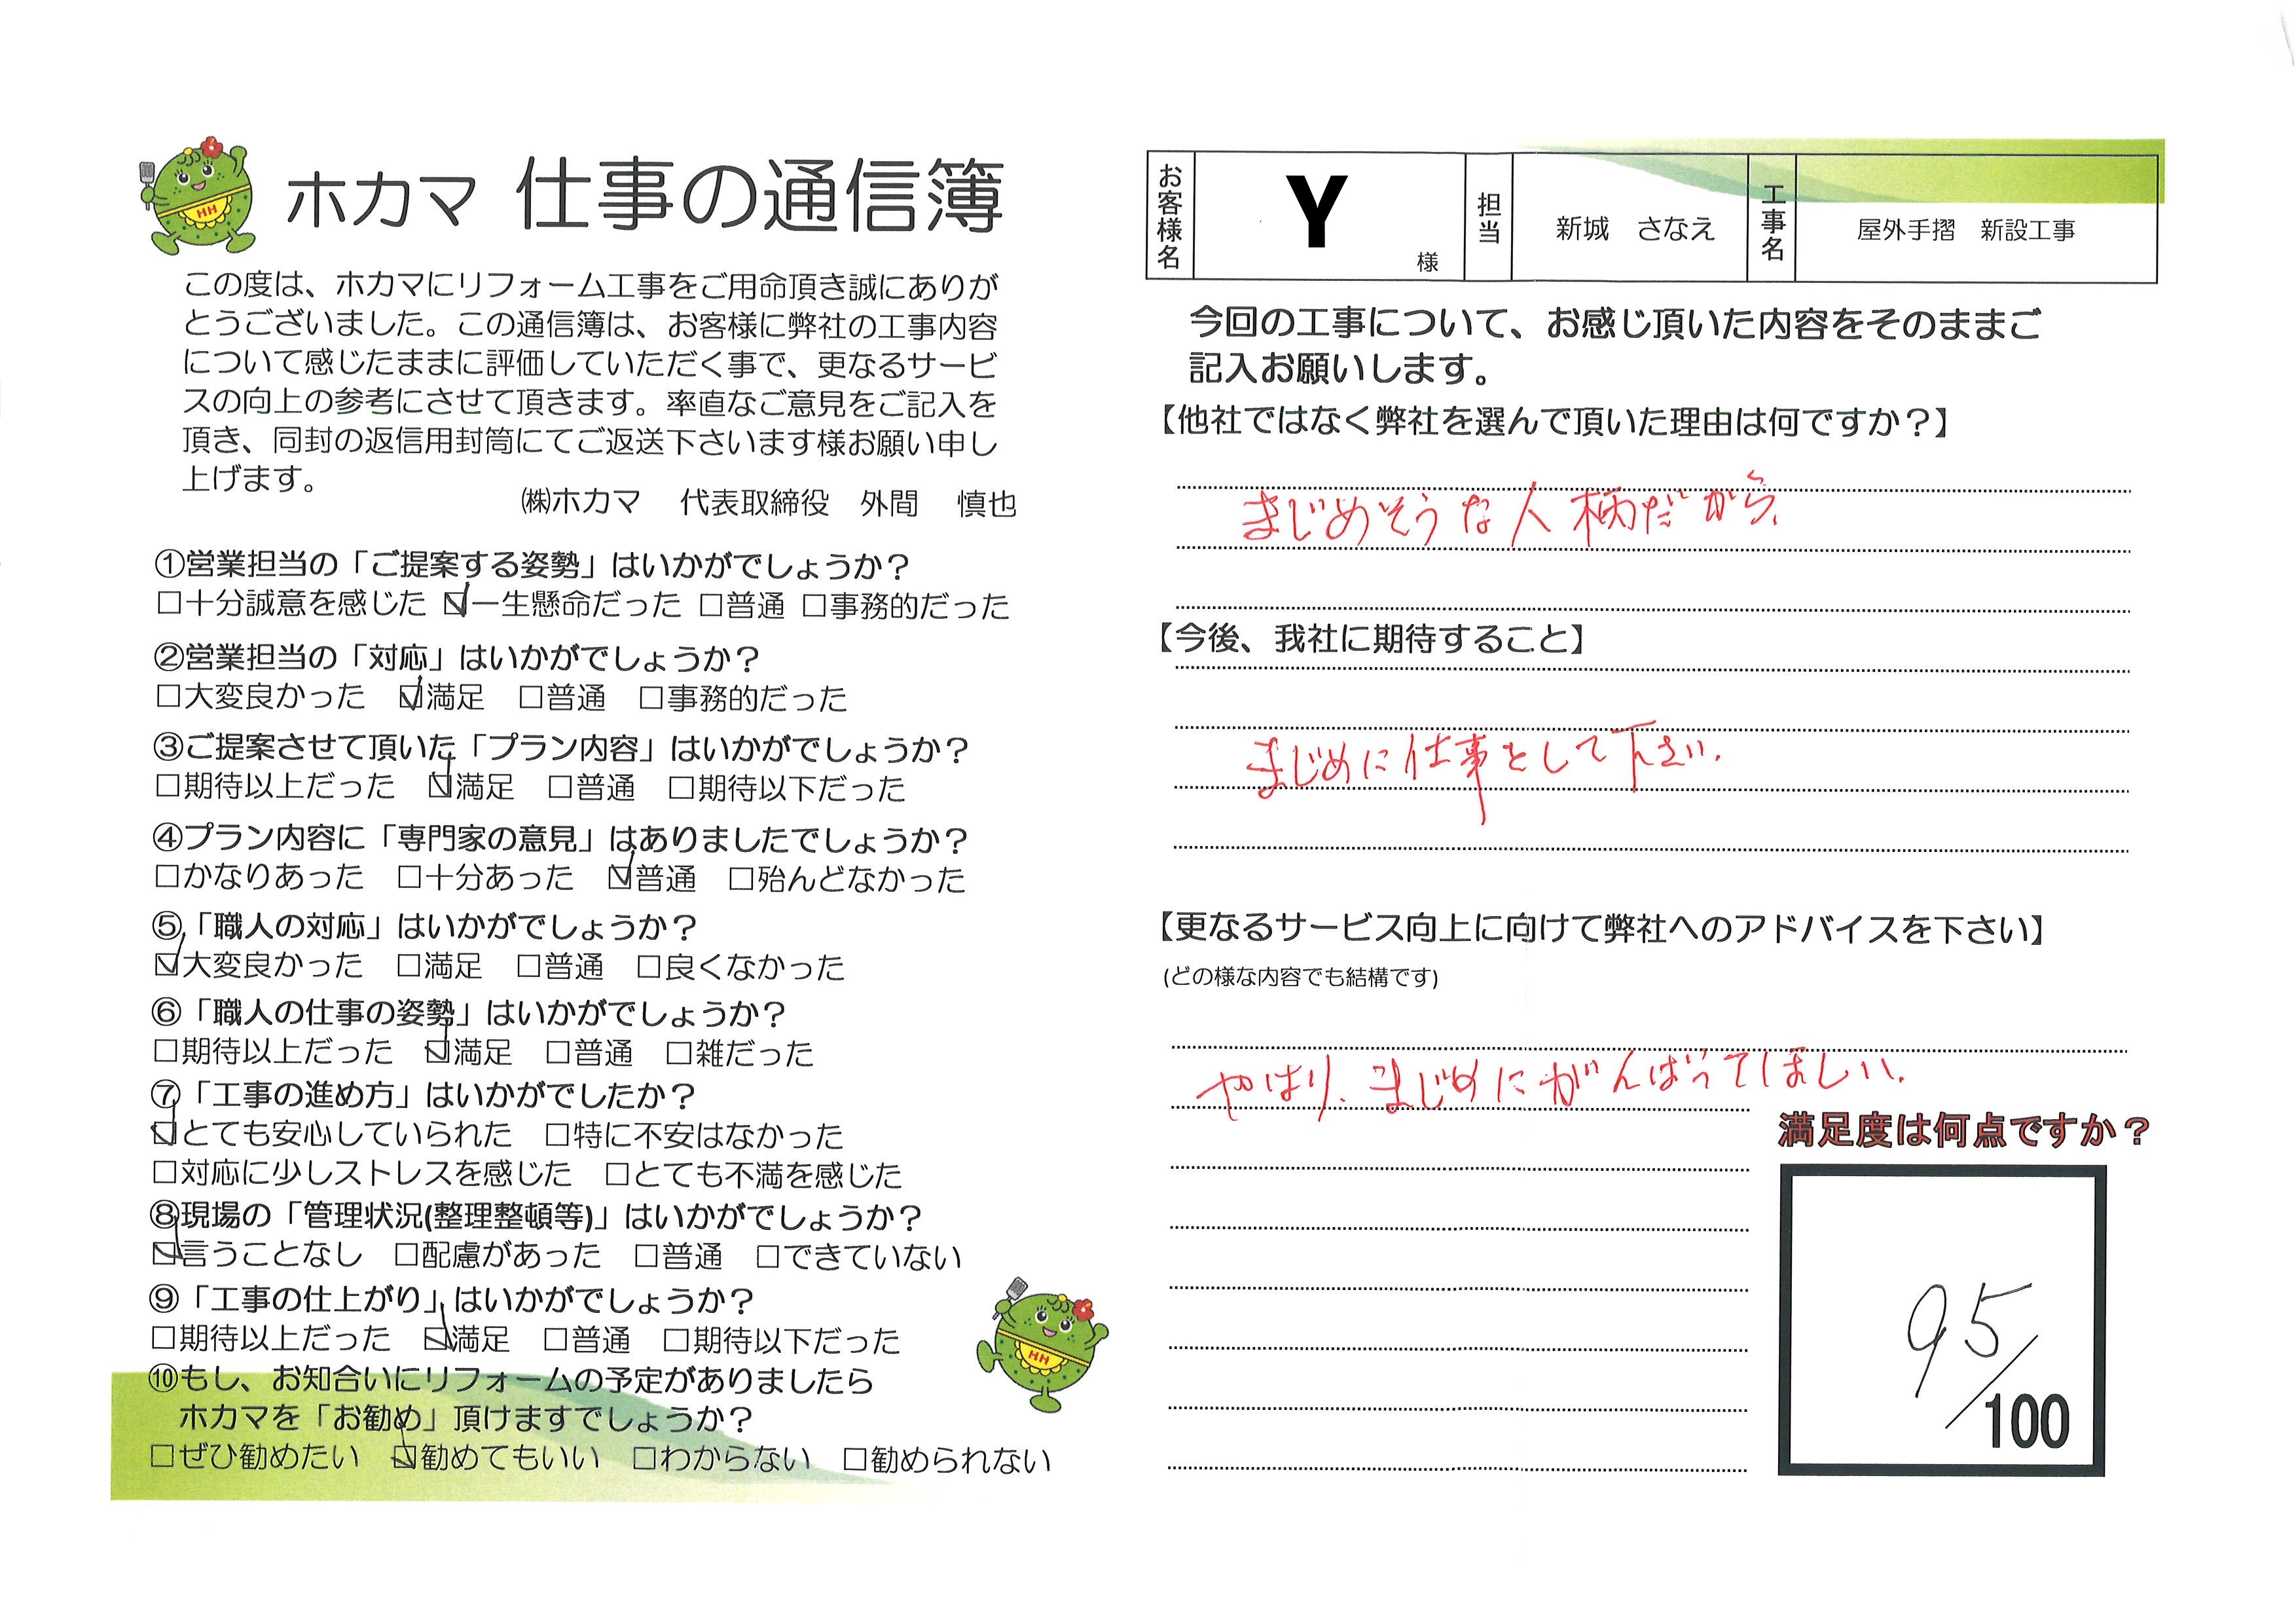 ホカマ 仕事の通信簿
この度は、ホカマにリフォーム工事をご用命頂き誠にありが
とうございました。この通信簿は、お客様に弊社の工事内容
について感じたままに評価していただく事で、更なるサービ
スの向上の参考にさせて頂きます。率直なご意見をご記入を
頂き、同封の返信用封筒にてご返送下さいます様お願い申し
上げます。
㈱ホカマ 代表取締役 外間 慎也
①営業担当の「ご提案する姿勢」はいかがでしょうか？
□十分誠意を感じた ☑一生懸命だった □普通 □事務的だった
②営業担当の「対応」はいかがでしょうか？
□大変良かった ☑満足 □普通 □事務的だった
③ご提案させて頂いた「プラン内容」はいかがでしょうか？
□期待以上だった ☑満足 □普通 □期待以下だった
④プラン内容に「専門家の意見」はありましたでしょうか？
□かなりあった □十分あった ☑普通 □殆んどなかった
⑤「職人の対応」はいかがでしょうか？
☑大変良かった □満足 □普通 □良くなかった
⑥「職人の仕事の姿勢」はいかがでしょうか？
□期待以上だった ☑満足 □普通 □雑だった
⑦「工事の進め方」はいかがでしたか？
☑とても安心していられた □特に不安はなかった
□対応に少しストレスを感じた □とても不満を感じた
⑧現場の「管理状況(整理整頓等)」はいかがでしょうか？
☑言うことなし □配慮があった □普通 □できていない
⑨「工事の仕上がり」はいかがでしょうか？
□期待以上だった ☑満足 □普通 □期待以下だった
⑩もし、お知合いにリフォームの予定がありましたら
ホカマを「お勧め」頂けますでしょうか？
□ぜひ勧めたい ☑勧めてもいい □わからない □勧められない
HH
HH
お客様名 Y 様 担当 新城 さなえ 工事名 屋外手摺 新設工事
今回の工事について、お感じ頂いた内容をそのままご
記入お願いします。
【他社ではなく弊社を選んで頂いた理由は何ですか？】
まじめそうな人柄だから、
【今後、我社に期待すること】
まじめに仕事をして下さい.
【更なるサービス向上に向けて弊社へのアドバイスを下さい】
(どの様な内容でも結構です)
やはり、まじめにがんばってほしい.
満足度は何点ですか？
95/100